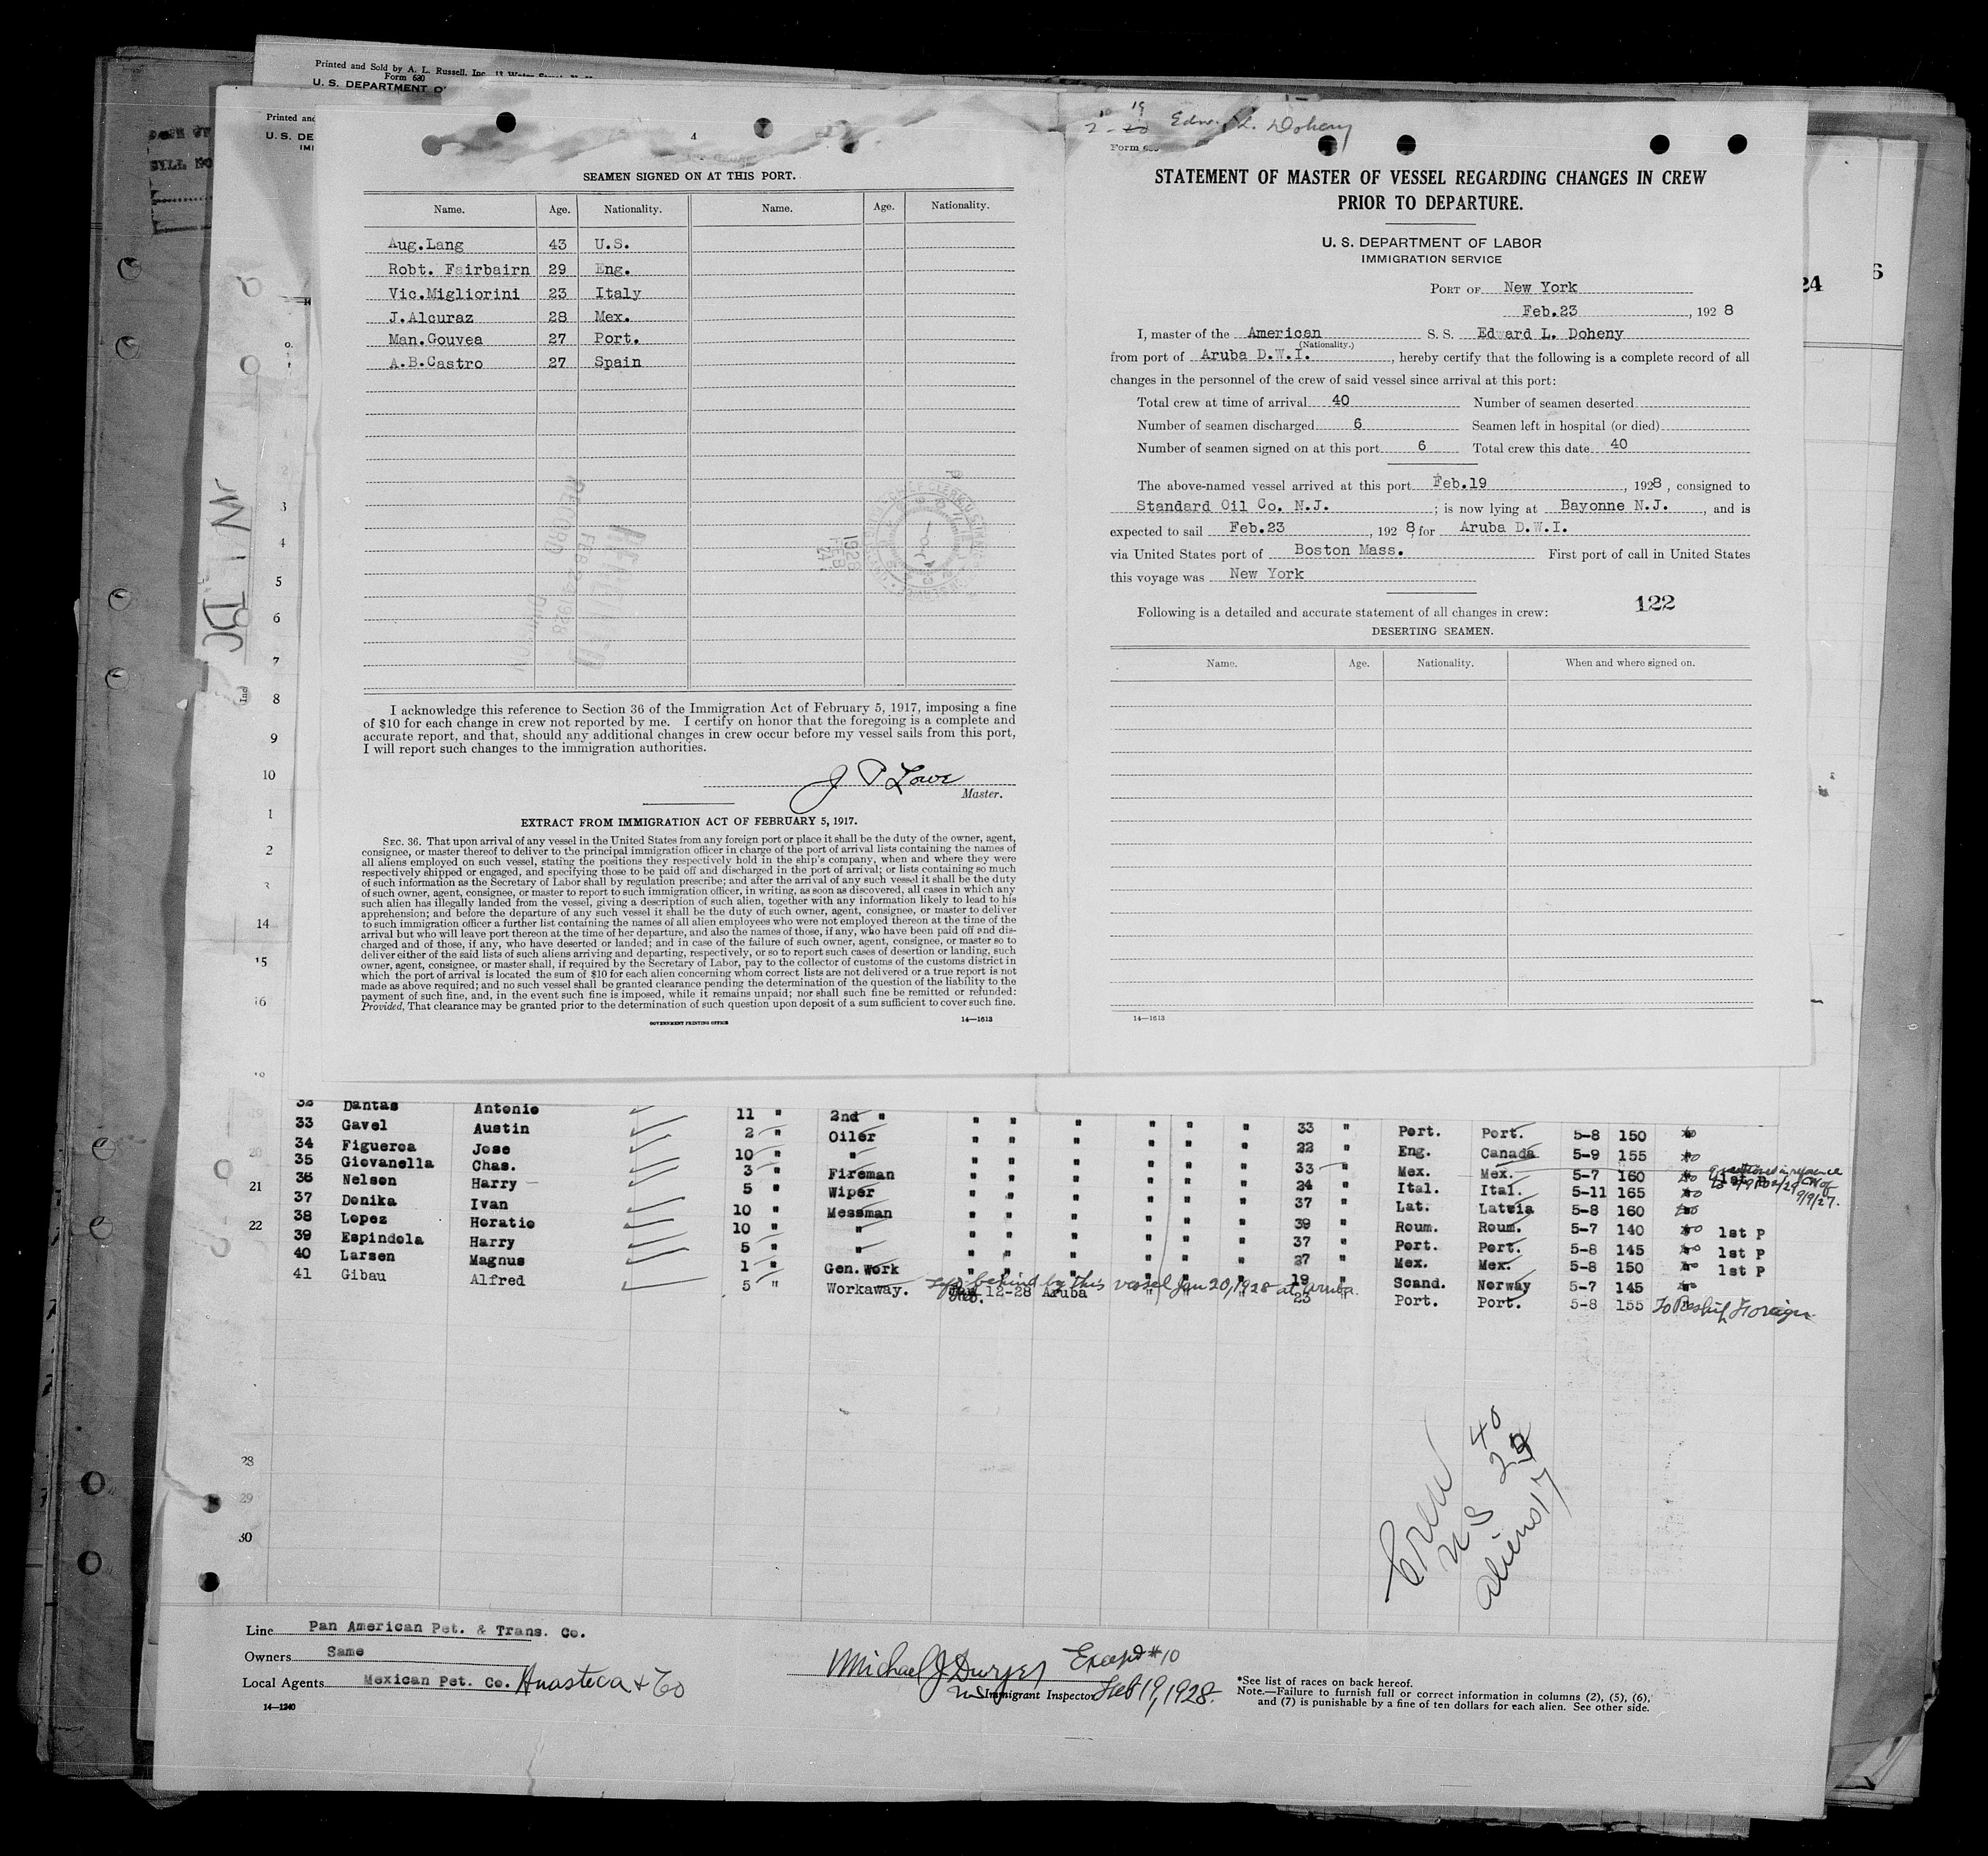 Printed and Sold by A. L. Russell, Inc.
Form 630
U. S. DEPARTMENT
Printed and
U. S. DE
4
SEAMEN SIGNED ON AT THIS PORT.
Name. Age. Nationality. Name. Age. Nationality.
Aug.Lang 43 U.S.
Robt. Fairbairn 29 Eng.
Vic.Migliorini 23 Italy
J.Alcuraz 28 Mex.
Man.Gouvea 27 Port.
A.B.Castro 27 Spain
RECEIVED
FEB 24 1928
RECORD DIVISION
1928
FEB
24
I acknowledge this reference to Section 36 of the Immigration Act of February 5, 1917, imposing a fine
of $10 for each change in crew not reported by me. I certify on honor that the foregoing is a complete and
accurate report, and that, should any additional changes in crew occur before my vessel sails from this port,
I will report such changes to the immigration authorities.
J P Lowe
Master.
EXTRACT FROM IMMIGRATION ACT OF FEBRUARY 5, 1917.
SEC. 36. That upon arrival of any vessel in the United States from any foreign port or place it shall be the duty of the owner, agent,
consignee, or master thereof to deliver to the principal immigration officer in charge of the port of arrival lists containing the names of
all aliens employed on such vessel, stating the positions they respectively hold in the ship's company, when and where they were
respectively shipped or engaged, and specifying those to be paid off and discharged in the port of arrival; or lists containing so much
of such information as the Secretary of Labor shall by regulation prescribe; and after the arrival of any such vessel it shall be the duty
of such owner, agent, consignee, or master to report to such immigration officer, in writing, as soon as discovered, all cases in which any
such alien has illegally landed from the vessel, giving a description of such alien, together with any information likely to lead to his
apprehension; and before the departure of any such vessel it shall be the duty of such owner, agent, consignee, or master to deliver
to such immigration officer a further list containing the names of all alien employees who were not employed thereon at the time of the
arrival but who will leave port thereon at the time of her departure, and also the names of those, if any, who have been paid off and dis-
charged and of those, if any, who have deserted or landed; and in case of the failure of such owner, agent, consignee, or master so to
deliver either of the said lists of such aliens arriving and departing, respectively, or so to report such cases of desertion or landing, such
owner, agent, consignee, or master shall, if required by the Secretary of Labor, pay to the collector of customs of the customs district in
which the port of arrival is located the sum of $10 for each alien concerning whom correct lists are not delivered or a true report is not
made as above required; and no such vessel shall be granted clearance pending the determination of the question of the liability to the
payment of such fine, and, in the event such fine is imposed, while it remains unpaid; nor shall such fine be remitted or refunded:
Provided, That clearance may be granted prior to the determination of such question upon deposit of a sum sufficient to cover such fine.
GOVERNMENT PRINTING OFFICE 14—1613
Edw. L. Doheny
STATEMENT OF MASTER OF VESSEL REGARDING CHANGES IN CREW
PRIOR TO DEPARTURE.
U. S. DEPARTMENT OF LABOR
IMMIGRATION SERVICE
PORT OF New York
Feb.23, 1928
I, master of the American S. S. Edward L. Doheny
(Nationality.)
from port of Aruba D.W.I., hereby certify that the following is a complete record of all
changes in the personnel of the crew of said vessel since arrival at this port:
Total crew at time of arrival 40 Number of seamen deserted
Number of seamen discharged 6 Seamen left in hospital (or died)
Number of seamen signed on at this port 6 Total crew this date 40
The above-named vessel arrived at this port Feb.19, 1928, consigned to
Standard Oil Co. N.J.; is now lying at Bayonne N.J., and is
expected to sail Feb.23, 1928, for Aruba D.W.I.
via United States port of Boston Mass. First port of call in United States
this voyage was New York
122
Following is a detailed and accurate statement of all changes in crew:
DESERTING SEAMEN.
Name. Age. Nationality. When and where signed on.
14—1613
24
6
32 Dantas Antonio 11 " 2nd " " " " " " " 33 " Port. Port. 5-8 150
33 Gavel Austin 2 " Oiler " " " " " " 22 " Eng. Canada 5-9 155
34 Figueroa Jose 10 " " " " " " " " 33 " Mex. Mex. 5-7 160
35 Giovanella Chas. 3 " Fireman " " " " " " 24 " Ital. Ital. 5-11 165
36 Nelson Harry 5 " Wiper " " " " " " 37 " Lat. Latvia 5-8 160
37 Donika Ivan 10 " Messman " " " " " " 39 " Roum. Roum. 5-7 140 1st P
38 Lopez Horatio 10 " " " " " " " " 37 " Port. Port. 5-8 145 1st P
39 Espindola Harry 5 " " " " " " " " 27 " Mex. Mex. 5-8 150 1st P
40 Larsen Magnus 1 " Gen.Work " " " " " " 19 " Scand. Norway 5-7 145
left behind by this vessel Jan 20, 1928 at Aruba.
41 Gibau Alfred 5 " Workaway. Feb. 12-28 Aruba " " " 23 " Port. Port. 5-8 155 To Reship Foreign
Crew 40
US 23
aliens 17
Line Pan American Pet. & Trans. Co.
Owners Same
Local Agents Mexican Pet. Co. Huasteca & Co
14—1240
Michael J Dwyer Except #10
US Immigrant Inspector Feb 19, 1928.
*See list of races on back hereof.
Note.—Failure to furnish full or correct information in columns (2), (5), (6),
and (7) is punishable by a fine of ten dollars for each alien. See other side.